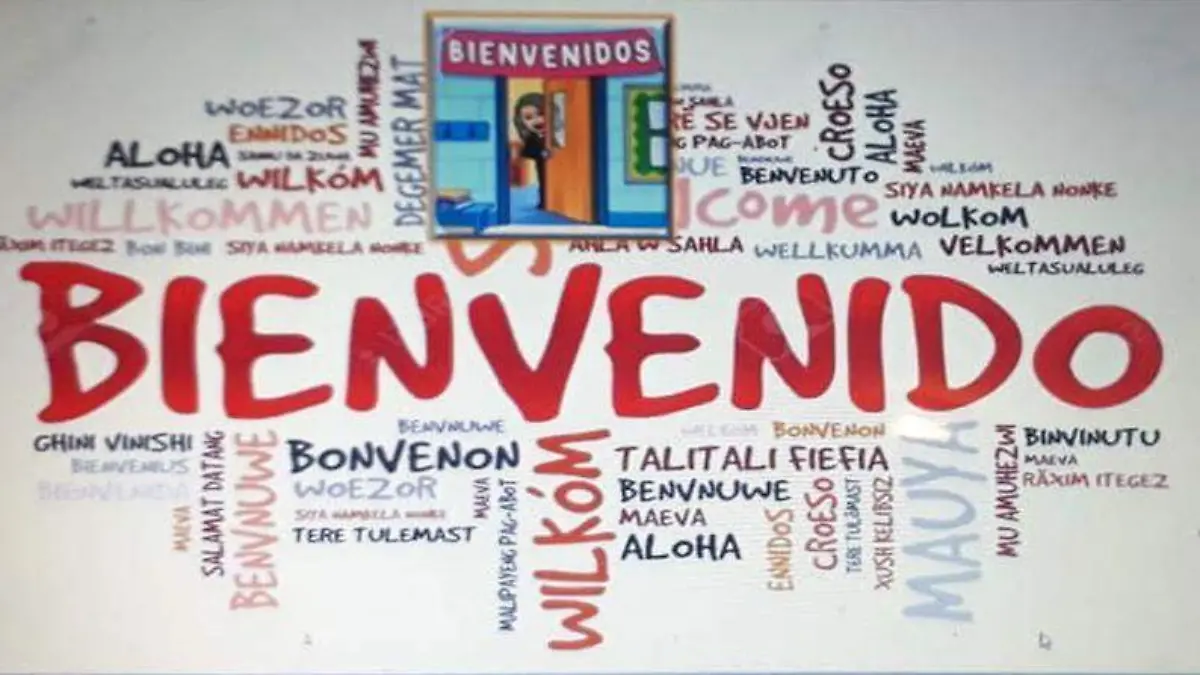 BIENVENIDOS
WOEZOR
ENNIDOS
MU AMUHEZWI
DEGEMER MAT
ALOHA
WELTASUALULEG
WILKÓM
WILLKOMMEN
RÄXIM ITEGEZ
BON BINI
SIYA NAMKELA NONKE
W SAHLA
RÉ SE VJEN
G PAG-ABOT
NUE
BENVENUTO
CROESO
ALOHA
MAEVA
WILKÓM
SIYA NAMKELA NONKE
lcome
WOLKOM
AHLA W SAHLA
WELLKUMMA
VELKOMMEN
WELTASUALULEG
BIENVENIDO
GHINI VINISHI
BIENVENIUS
BIENVENIDA
MAEVA
SALAMAT DATANG
BENVNUWE
BENVNUWE
BONVENON
WOEZOR
SIYA NAMKELA NONKE
TERE TULEMAST
MAEVA
MALIPAYENG PAG-ABOT
WILKÓM
WILKÓM
BONVENON
TALITALI FIEFIA
BENVNUWE
MAEVA
ALOHA
ENNIDOS
CROESO
TERE TULEMAST
XUSH KELIBSIZ
MAUYA
MU AMUHEZWI
BINVINUTU
MAEVA
RÄXIM ITEGEZ